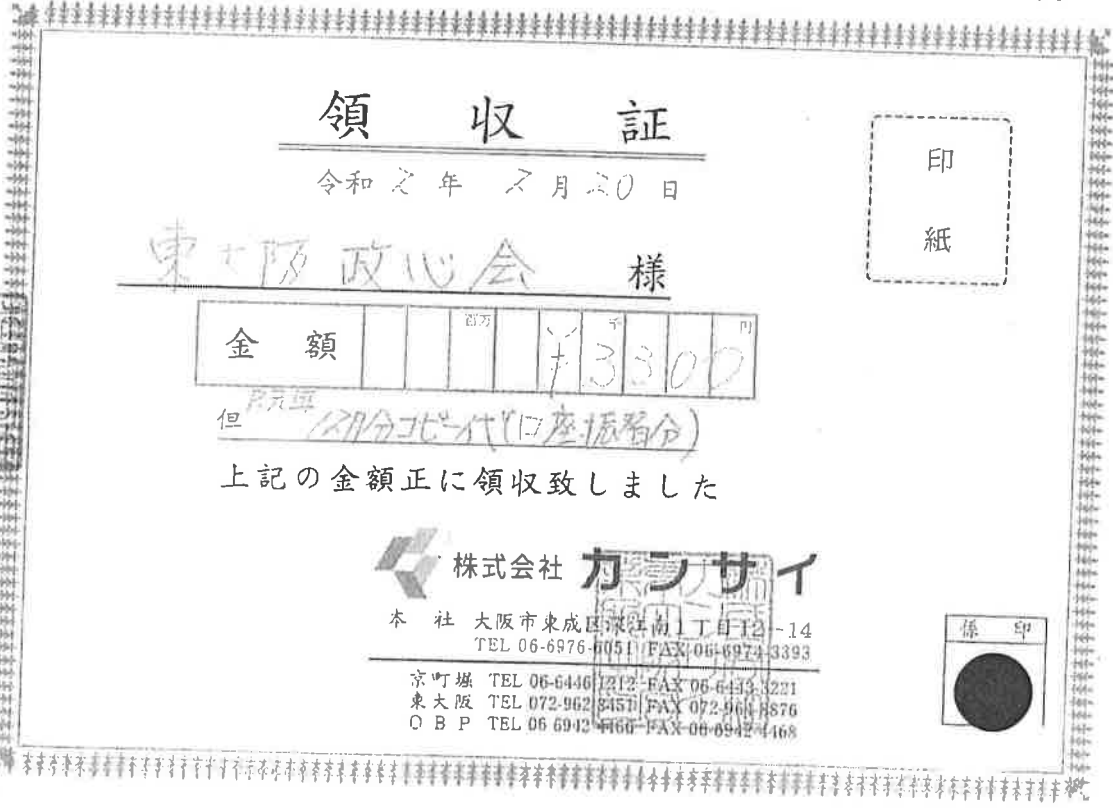 領収証
令和2年2月20日
東大阪政心会 様
印
紙
金額 百万 千 円
¥3300
但 12月分コピー代(口座振替分)
上記の金額正に領収致しました
株式会社 カンサイ
本社 大阪市東成区深江南1丁目12-14
TEL 06-6976-6051 FAX 06-6974-3393
京町堀 TEL 06-6446-1212 FAX 06-6443-3221
東大阪 TEL 072-962-8451 FAX 072-964-8876
OBP TEL 06-6942-4466 FAX 06-6942-4468
係印